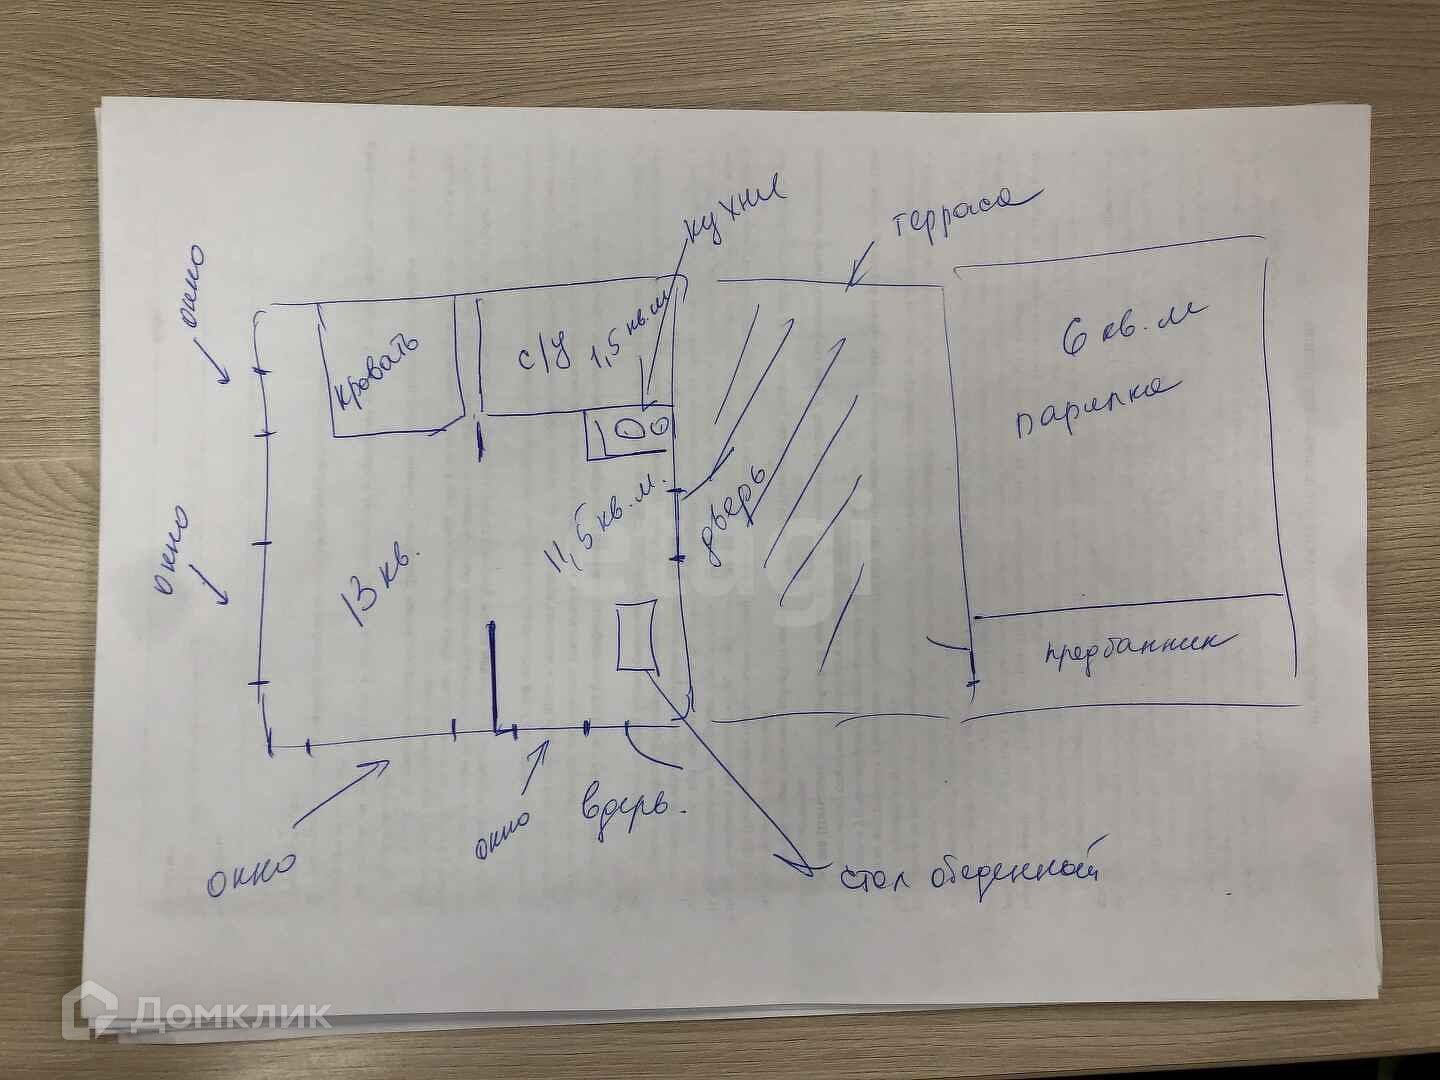 кухня
терраса
окно
кровать
с/у 1,5 кв.м
6 кв.м
парилка
дверь
11,5 кв.м.
окно
13 кв.
предбанник
окно
окно
вдерь.
стол обеденный
etagi
Домклик